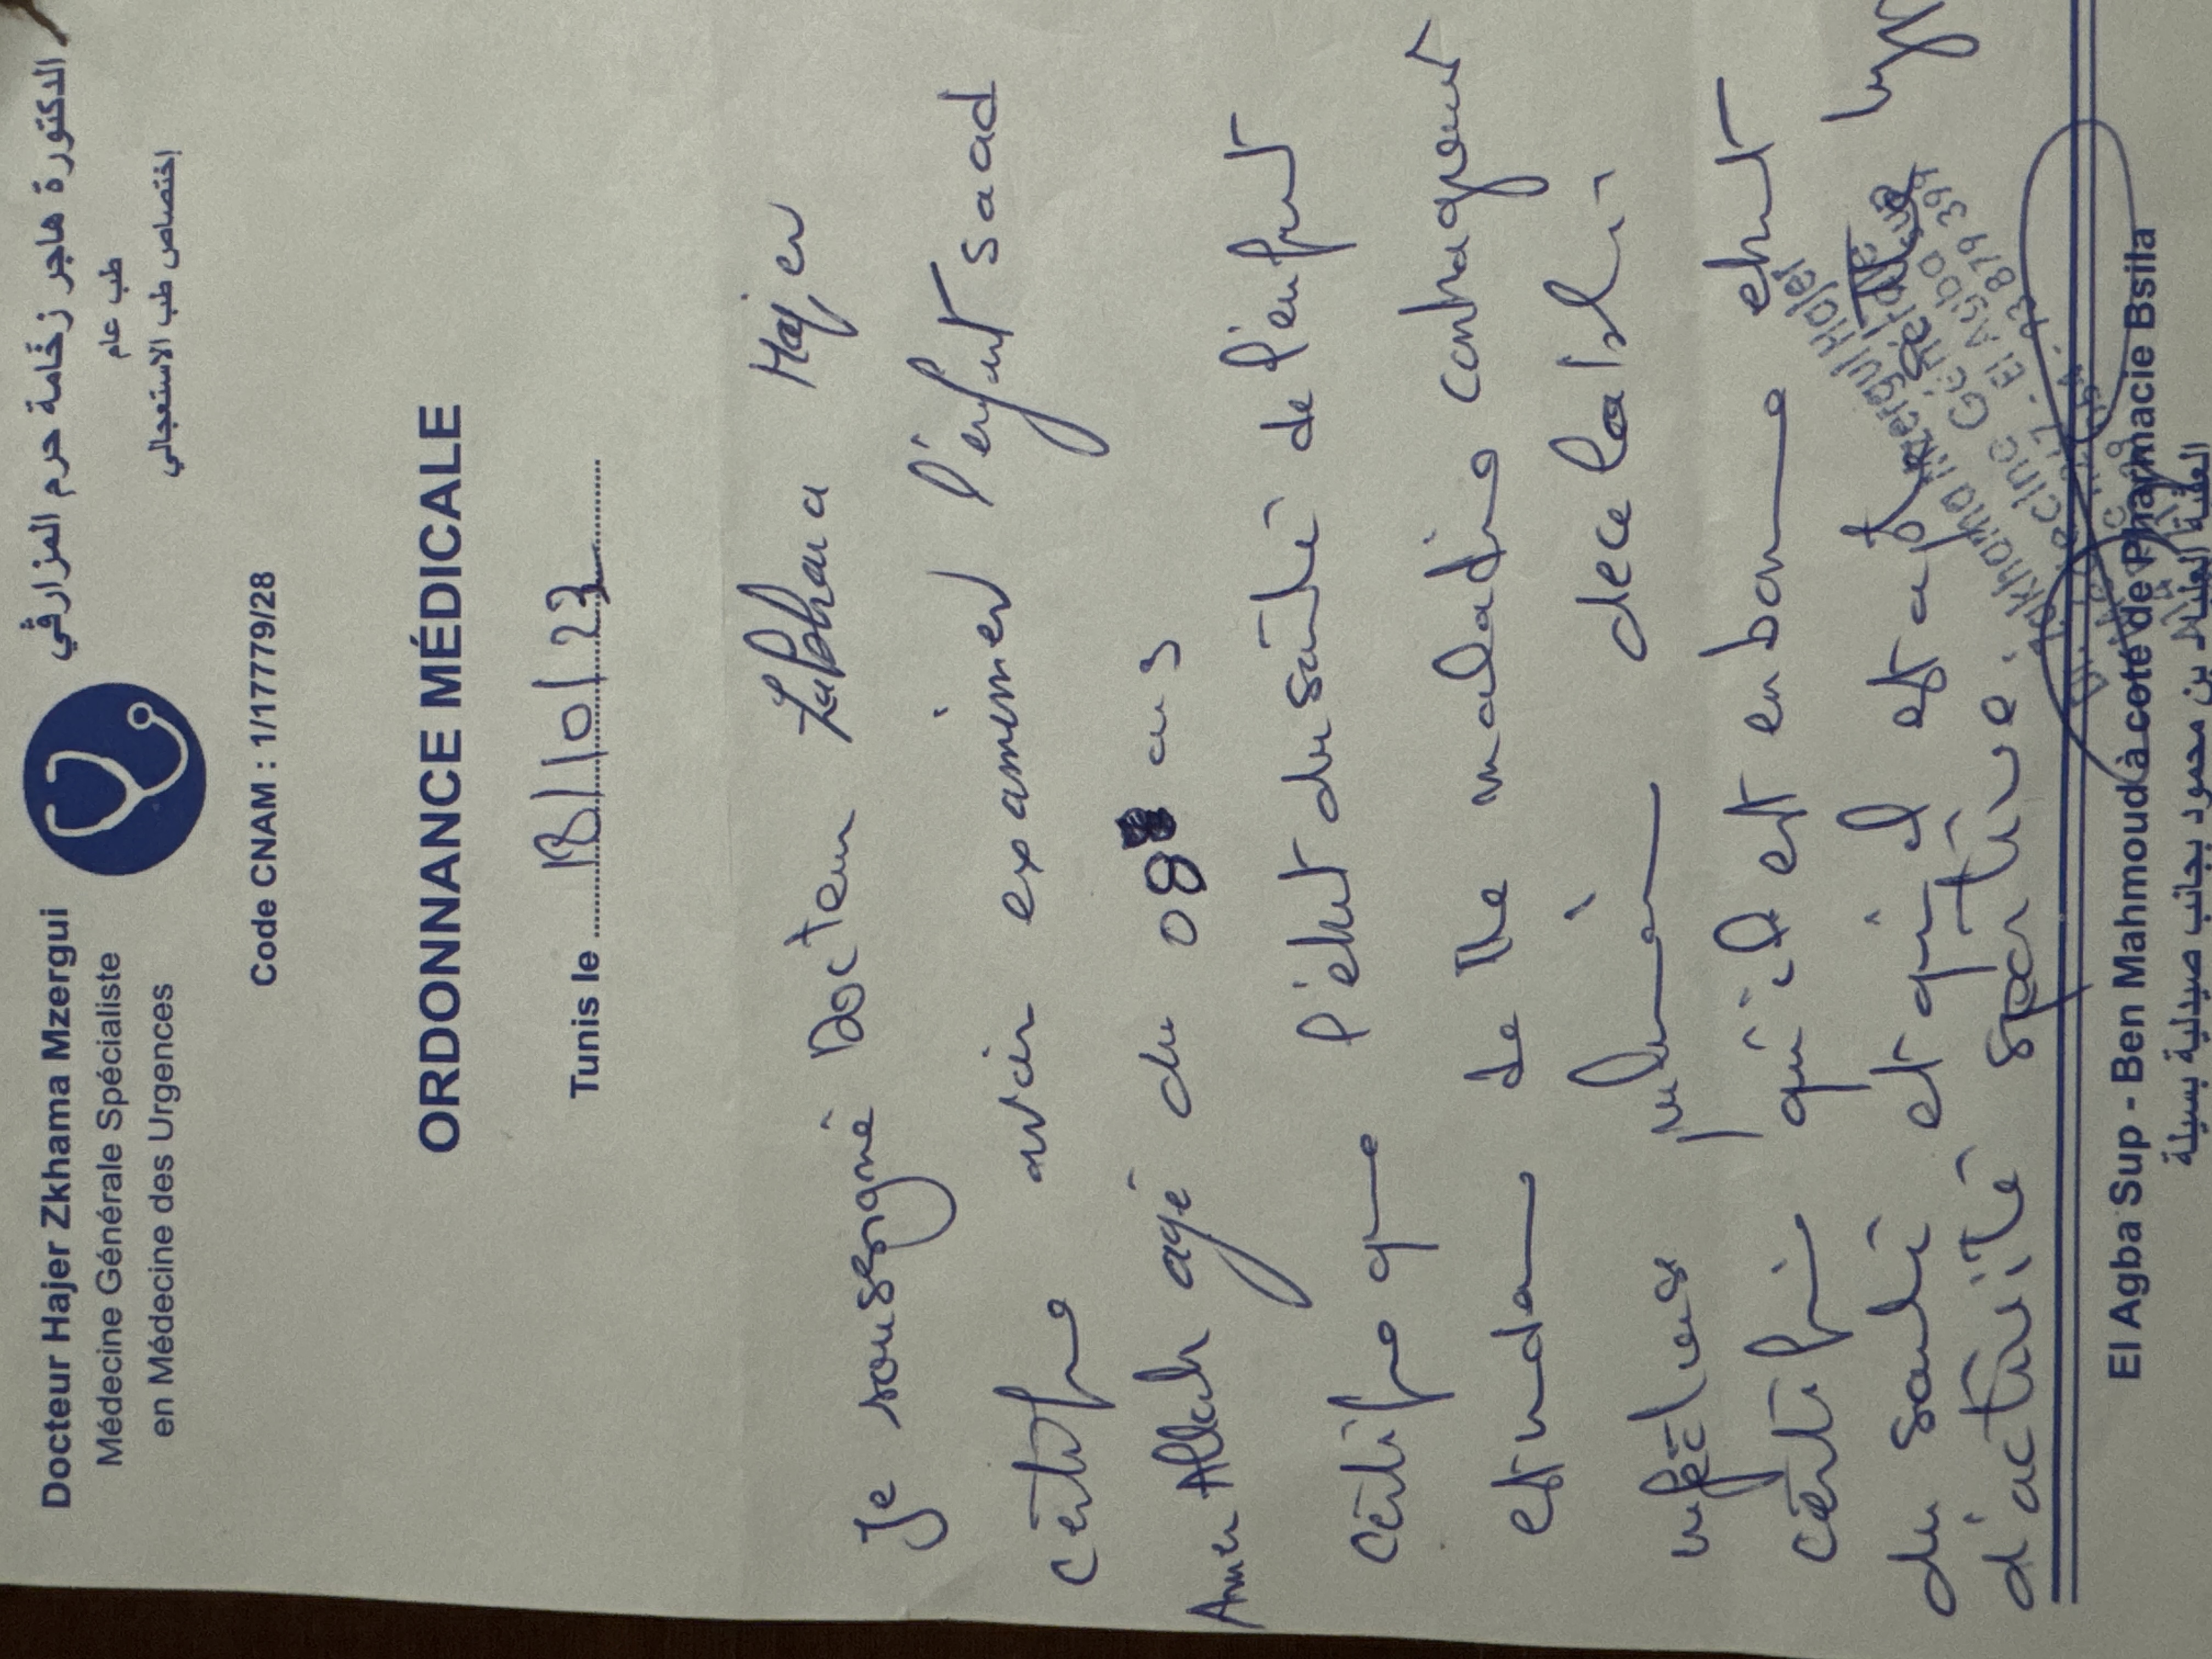 Docteur Hajer Zkhama Mzergui
Médecine Générale Spécialiste
en Médecine des Urgences
الدكتورة هاجر زخامة حرم المزارقي
طب عام
إختصاص طب الاستعجالي
Code CNAM : 1/17779/28
ORDONNANCE MÉDICALE
Tunis le
Je soussigné Docteur Zakhama Hajer
certifie avoir examiner l'enfant saad
Amen Allah agé du 08 ans
Certifie que l'état du santé de l'enfant
est indem de tte maladie contagieuse
infectieuse decelable
certifie qu'il est en bonne etat
du santé et qu'il est apte tte type
d'activité sportive.
Mzergui Hajer
El Agba
El Agba Sup - Ben Mahmoud à coté de Pharmacie Bsila
العقبة العليا بن محمود بجانب صيدلية بسيلة